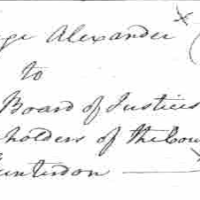 ge Alexander
to
Board of Justices
holders of the Cou
unterdon